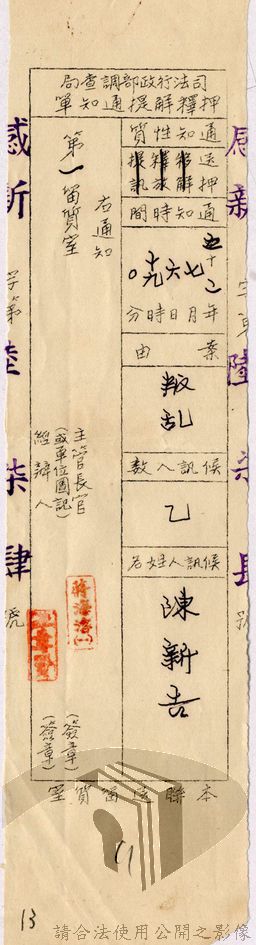 司法行政部調查局
押釋解提通知單
通知性質
送押
移解
釋放
提訊
通知時間
五十二
七
六
十九
0
年月日時分
案由
叛乱
候訊人數
乙
候訊人姓名
陳新吉
右通知
第一留質室
主管長官
(或單位圖記)
經辦人
蔣海溶(一)
(簽章)
(簽章)
本聯送留質室
感新
字第
陸
柒
肆
號
13
請合法使用公開之影像